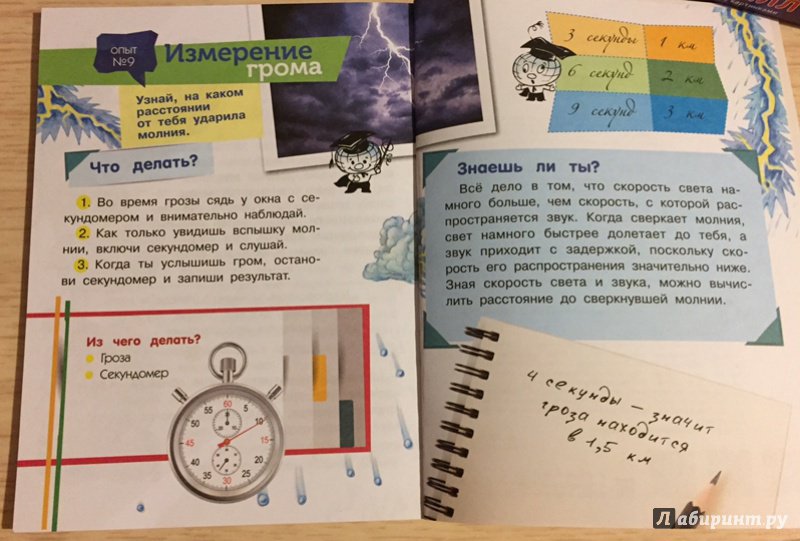 ОПЫТ
№9
Измерение
грома
Узнай, на каком
расстоянии
от тебя ударила
молния.
Что делать?
1. Во время грозы сядь у окна с се-
кундомером и внимательно наблюдай.
2. Как только увидишь вспышку мол-
нии, включи секундомер и слушай.
3. Когда ты услышишь гром, остано-
ви секундомер и запиши результат.
Из чего делать?
Гроза
Секундомер
60
55
5
50
10
45
15
40
20
35
25
30
3 секунды 1 км
6 секунд 2 км
9 секунд 3 км
Знаешь ли ты?
Всё дело в том, что скорость света на-
много больше, чем скорость, с которой рас-
пространяется звук. Когда сверкает молния,
свет намного быстрее долетает до тебя, а
звук приходит с задержкой, поскольку ско-
рость его распространения значительно ниже.
Зная скорость света и звука, можно вычис-
лить расстояние до сверкнувшей молнии.
4 секунды — значит
гроза находится
в 1,5 км
Лабиринт.ру